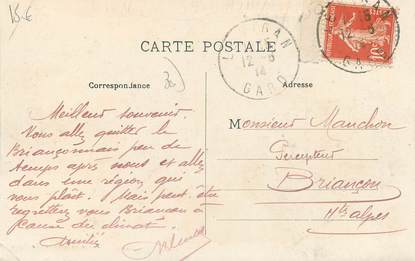 15 €
CARTE POSTALE
Correspondance
Adresse
12 - 5
14
GARD
10
Meilleur souvenir.
Vous allez quitter le
Briançonnais peu de
temps après nous et allez
dans une région qui
vous plaît. Mais peut-être
regretterez vous Briançon à
cause du climat.
Amitiés
Monsieur Mauchon
Percepteur
Briançon
Htes alpes